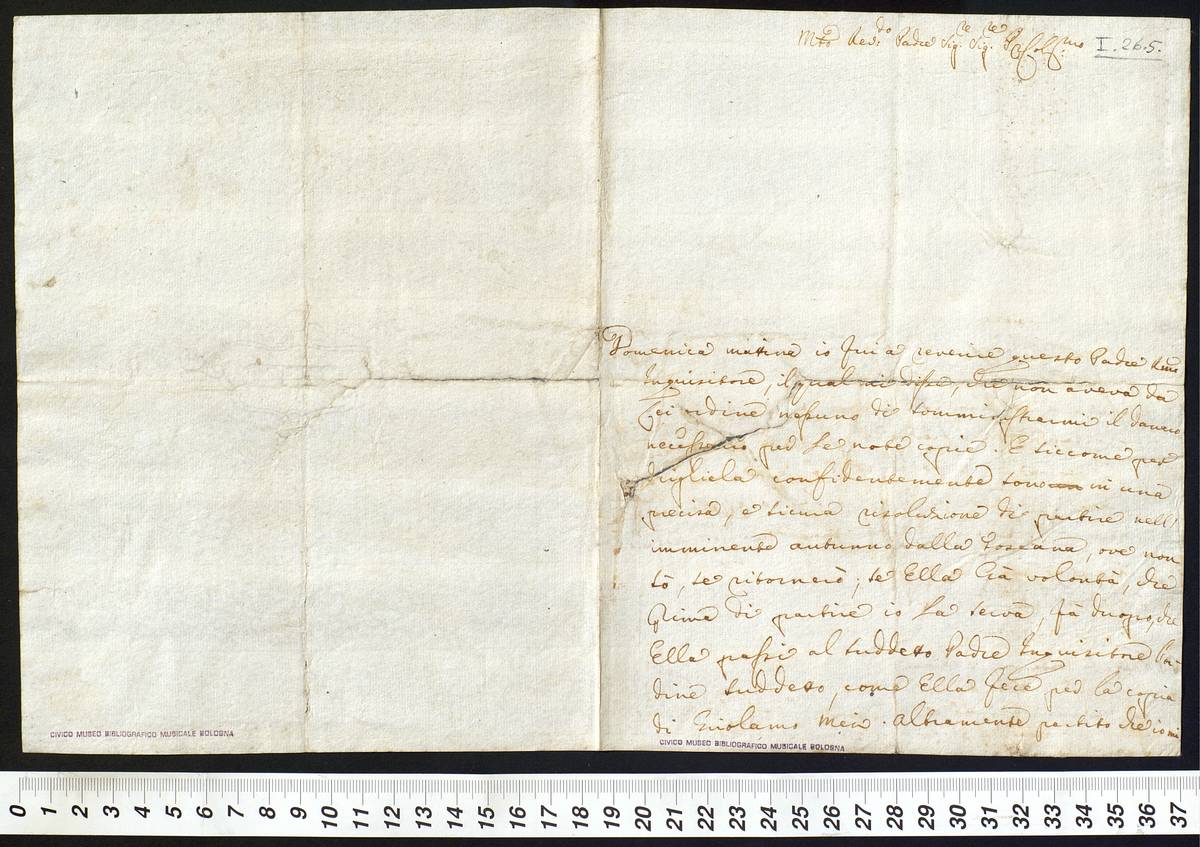 M.to Rev.do Padre Sig.re Sig.re P.ron Col.mo
I.26.5.
Domenica mattina io fui a reverire questo Padre R.mo
Inquisitore, il qual mi disse, che non aveva da
Lei ordine nessuno di somministrarmi il danaro
necessario per le note copie. E siccome per
dirgliela confidentemente sono in una
precisa, e sicura risoluzione di partire nell'
imminente autunno dalla Toscana, ove non
sò, se ritornerò; se Ella hà volontà, che
prima di partire io la serva, fà duopo, che
Ella passi al suddetto Padre Inquisitore l'or-
dine suddetto, come Ella fece per la copia
di Girolamo Mei. Altramente partito che io mi
CIVICO MUSEO BIBLIOGRAFICO MUSICALE BOLOGNA
CIVICO MUSEO BIBLIOGRAFICO MUSICALE BOLOGNA
0 1 2 3 4 5 6 7 8 9 10 11 12 13 14 15 16 17 18 19 20 21 22 23 24 25 26 27 28 29 30 31 32 33 34 35 36 37